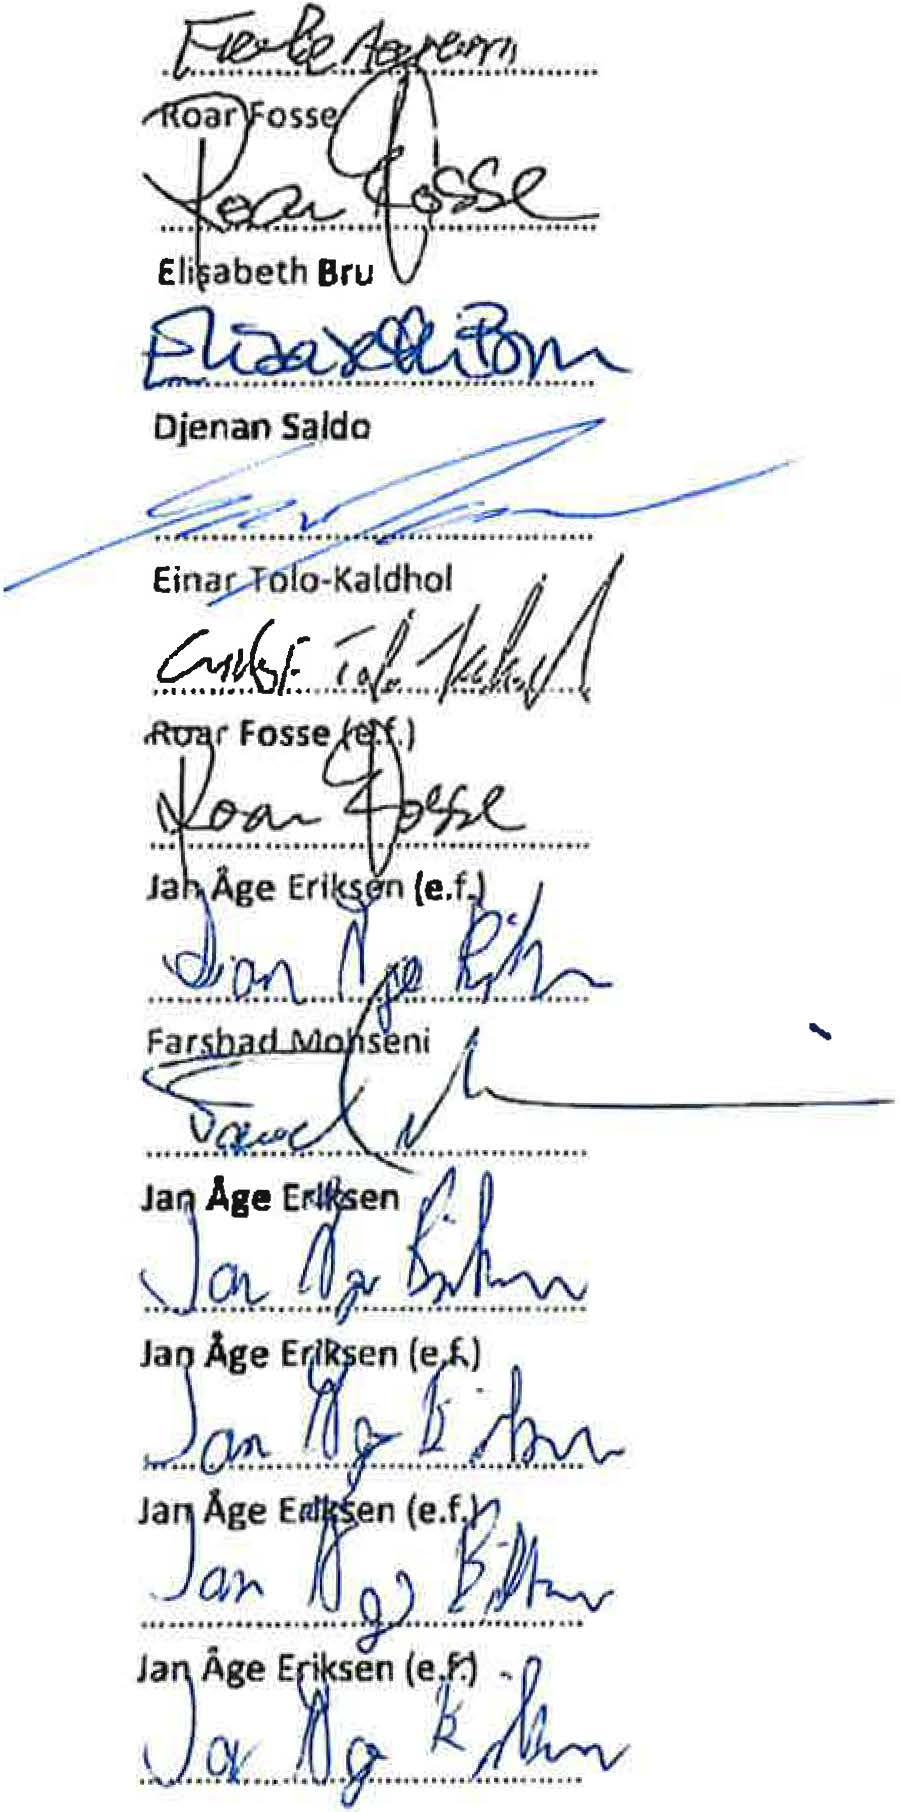 Roar Fosse
Roar Fosse
Elisabeth Bru
Elisabeth Bru
Djenan Saldo
Einar Tolo-Kaldhol
Tolo Kaldhol
Roar Fosse (e.f.)
Roar Fosse
Jan Åge Eriksen (e.f.)
Jan Åge Eriksen
Farshad Mohseni
Jan Åge Eriksen
Jan Åge Eriksen
Jan Åge Eriksen (e.f.)
Jan Åge Eriksen
Jan Åge Eriksen (e.f.)
Jan Åge Eriksen
Jan Åge Eriksen (e.f.)
Jan Åge Eriksen